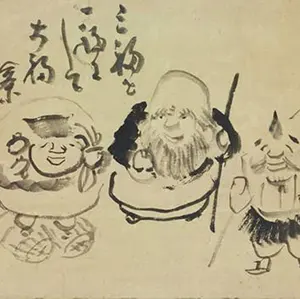 三福を
一福にして
大福
茶